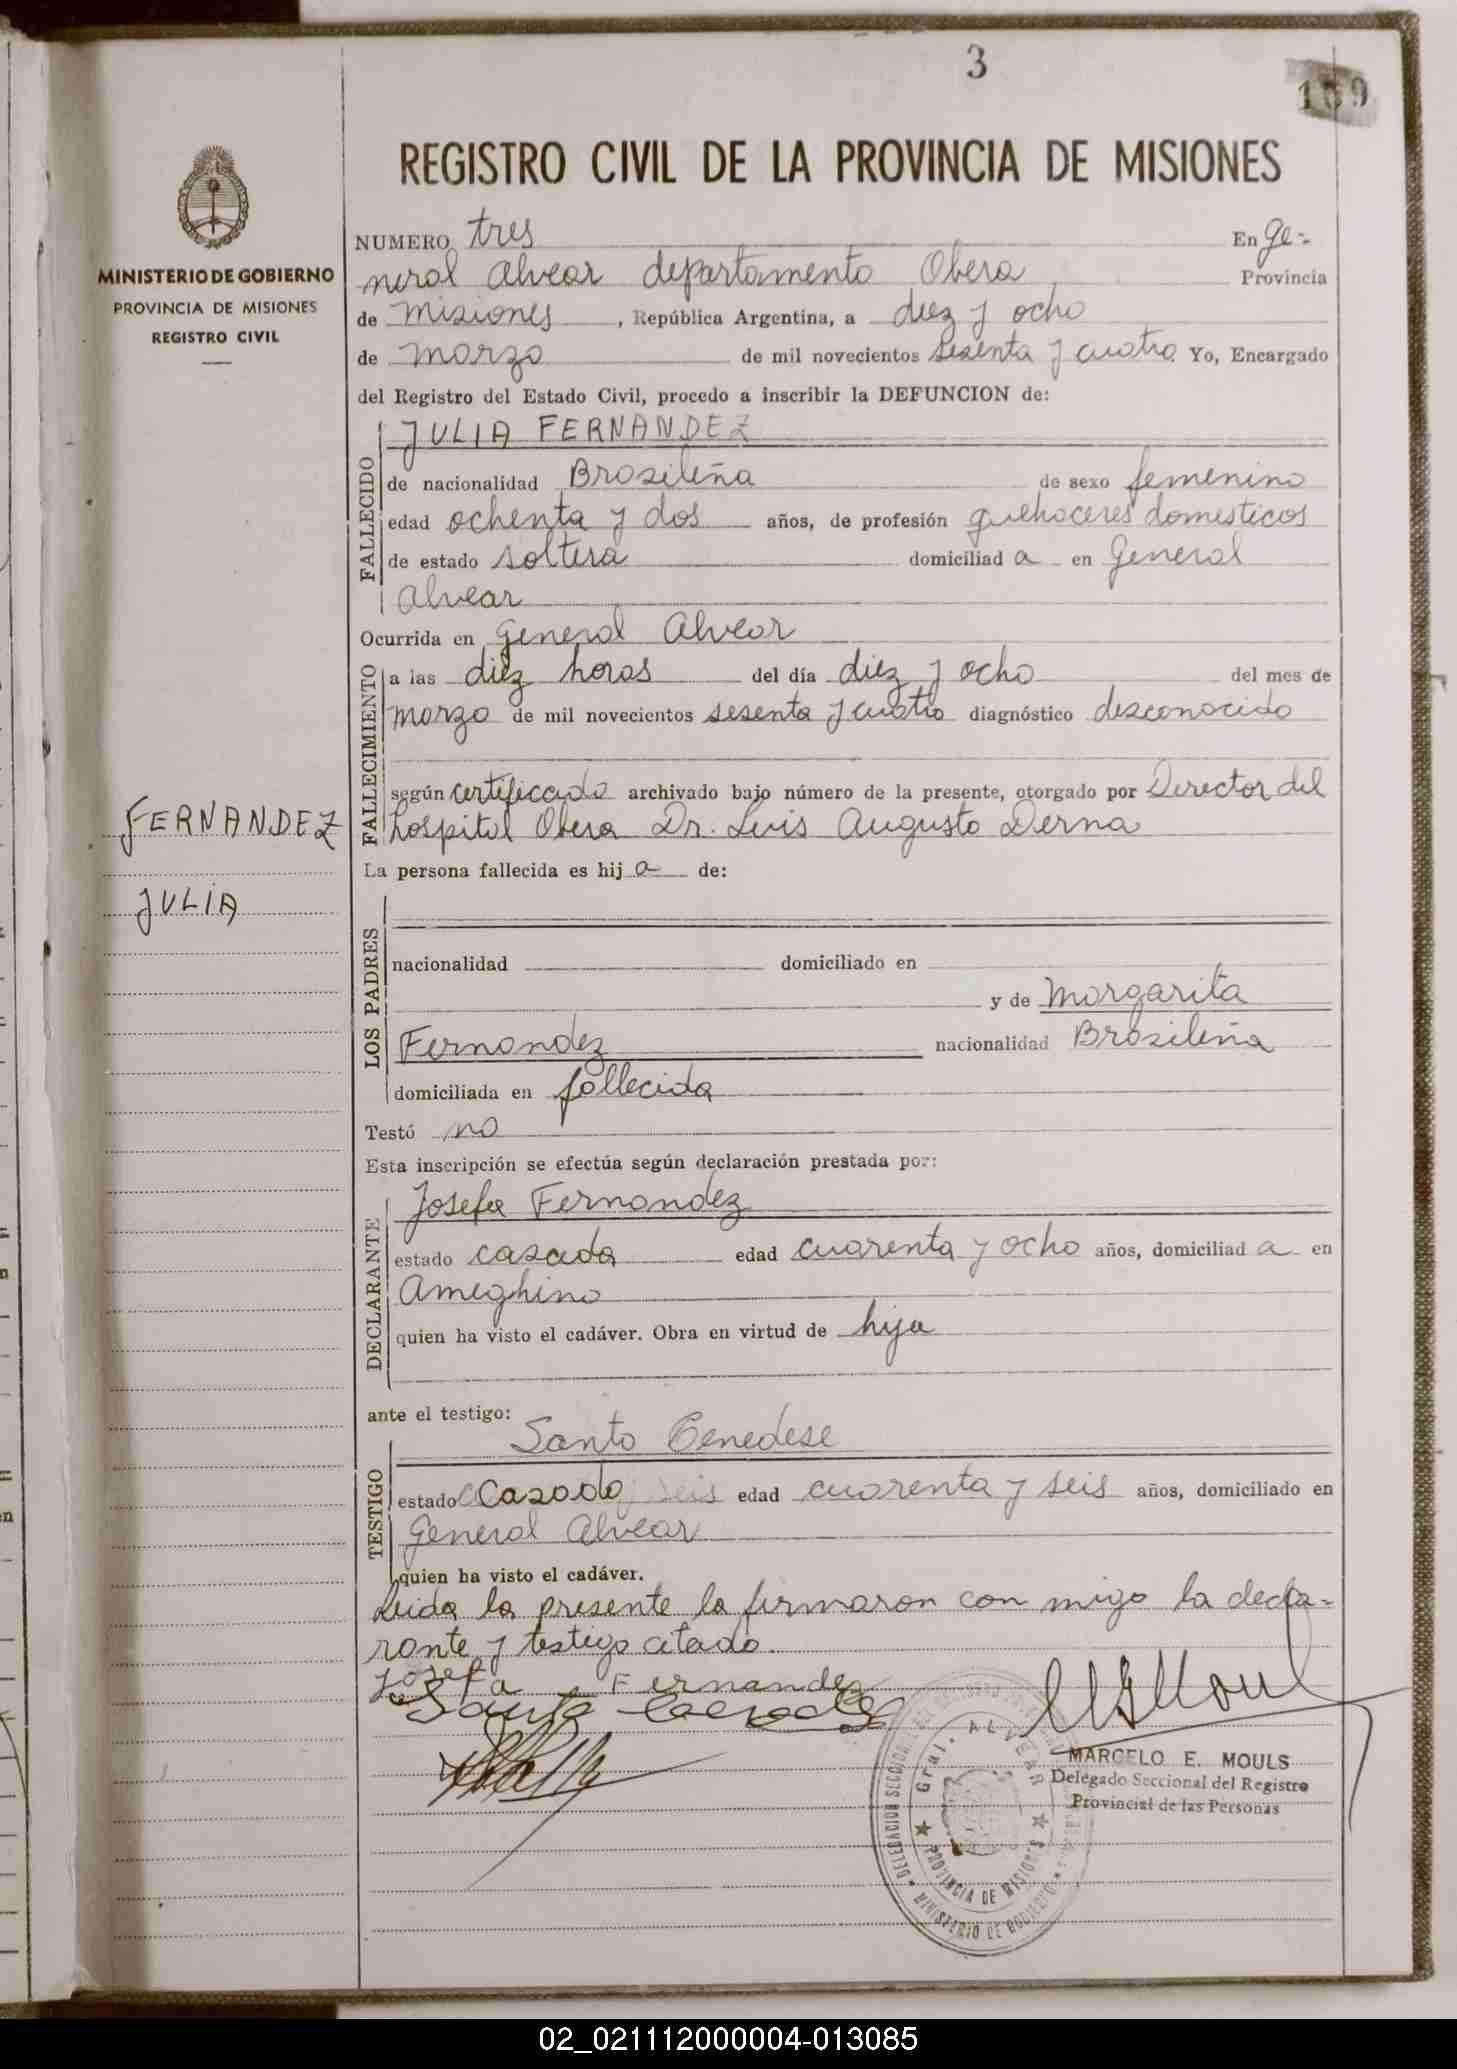 3
169
REGISTRO CIVIL DE LA PROVINCIA DE MISIONES
MINISTERIO DE GOBIERNO
PROVINCIA DE MISIONES
REGISTRO CIVIL
NUMERO tres En Ge-
neral Alvear departamento Obera Provincia
de Misiones, República Argentina, a diez y ocho
de marzo de mil novecientos sesenta y cuatro Yo, Encargado
del Registro del Estado Civil, procedo a inscribir la DEFUNCION de:
FALLECIDO
JULIA FERNANDEZ
de nacionalidad Brasileña de sexo femenino
edad ochenta y dos años, de profesión quehaceres domesticos
de estado soltera domiciliad a en General
Alvear
Ocurrida en General Alvear
FALLECIMIENTO
a las diez horas del día diez y ocho del mes de
marzo de mil novecientos sesenta y cuatro diagnóstico desconocido
según certificado archivado bajo número de la presente, otorgado por Director del
hospital Obera Dr. Luis Augusto Derna
FERNANDEZ
JULIA
La persona fallecida es hij a de:
LOS PADRES
nacionalidad domiciliado en
y de Margarita
Fernandez nacionalidad Brasileña
domiciliada en fallecida
Testó no
Esta inscripción se efectúa según declaración prestada por:
DECLARANTE
Josefa Fernandez
estado casada edad cuarenta y ocho años, domiciliad a en
Ameghino
quien ha visto el cadáver. Obra en virtud de hija
ante el testigo:
TESTIGO
Santo Cenedese
estado Casado edad cuarenta y seis años, domiciliado en
General Alvear
quien ha visto el cadáver.
Leida la presente la firmaron con migo la decla-
rante y testigo citado.
Josefa Fernandez
MARCELO E. MOULS
Delegado Seccional del Registro
Provincial de las Personas
Gral. ALVEAR
PROVINCIA DE MISIONES
MINISTERIO DE GOBIERNO
02_021112000004-013085